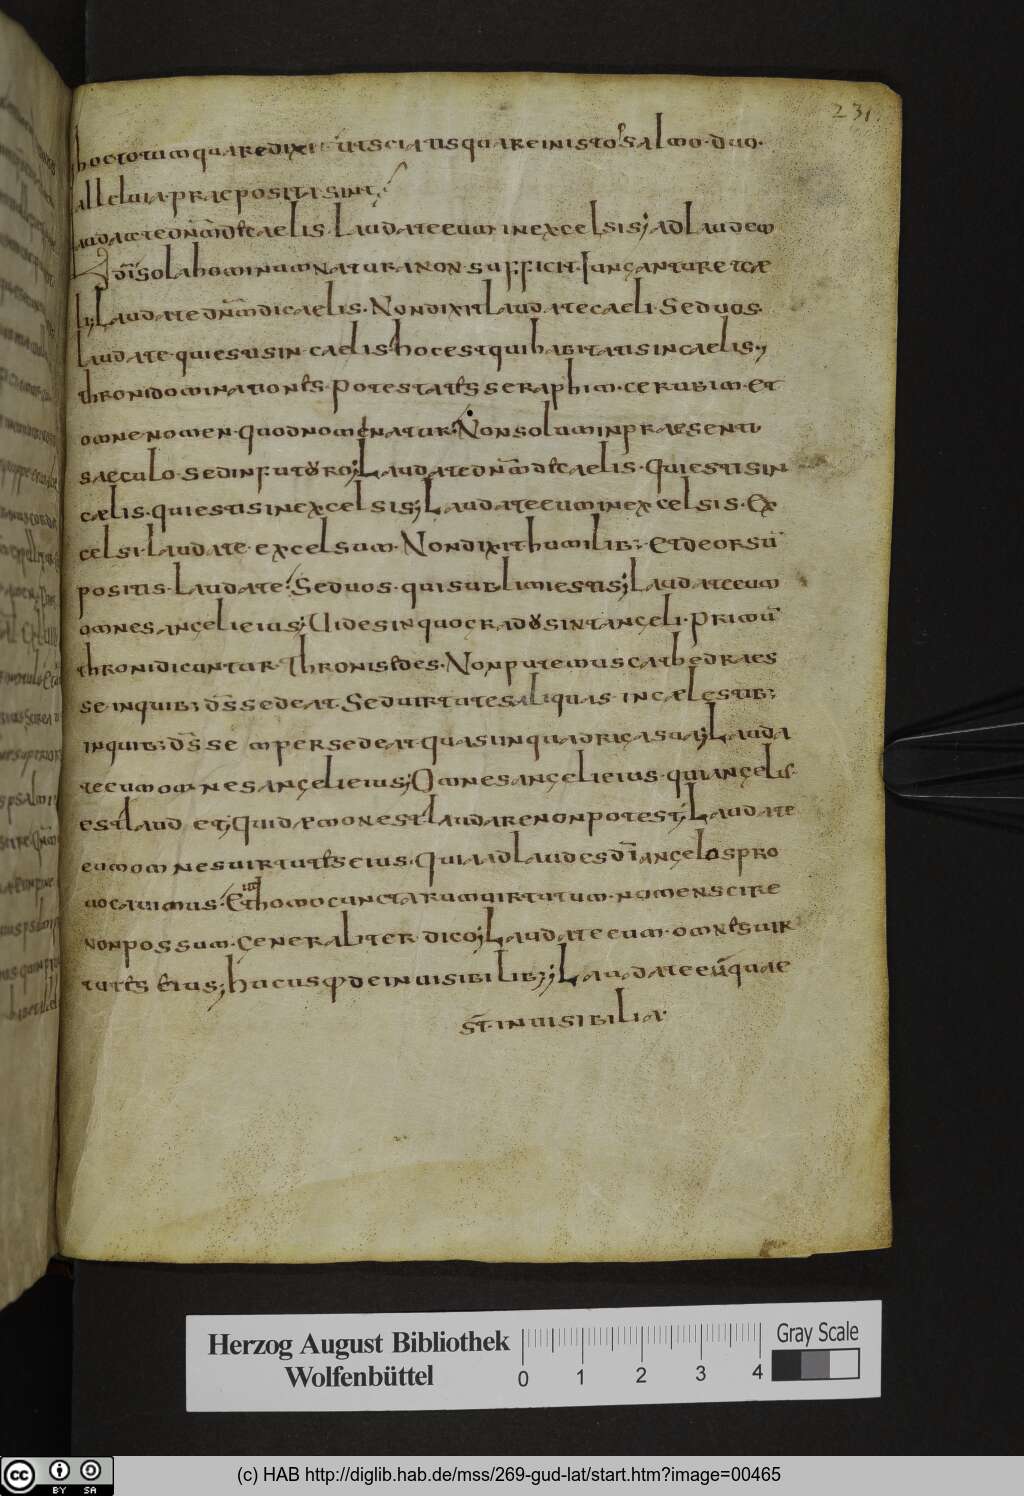 231
hoc totum quare dixi ut sciatis quare in isto psalmo · duo ·
alleluia · praeposita sint
Laudate dñm de caelis · Laudate eum in excelsis; ad laudem
dī sola hominum natura non sufficit · Iungantur et cae
li; Laudate dñm de caelis · Non dixit laudate caeli · Sed uos ·
laudate · qui estis in caelis hoc est qui habitatis in caelis;
throni dominationes · potestates seraphim · cerubim · et
omne nomen · quod nomenatur · Non solum in praesenti
saeculo · sed in futuro; Laudate dñm de caelis · qui estis in
caelis · qui estis in excelsis; Laudate eum in excelsis · Ex
celsi · laudate · excelsum · Non dixit humilib; · Et deorsū
positis · laudate · Sed uos · qui sublimi estis; Laudate eum
omnes angeli eius; Uides in quo gradu sint angeli · primū
throni dicuntur · Thronis sedes · Non putemus cathedraes
se in quib; dš sedeat · Sed uirtutes aliquas · in caelestib;
in quib; dš semper sedeat quasi in quadriga sua; Lauda
te eum omnes angeli eius; Omnes angeli eius · qui angelis
est laudet; Quid daemon est laudare non potest; Laudate
eum omnes uirtutes eius · Quia ad laudes dī angelos pro
uocauimus · Et homo cunctarum uirtutum · nomen scire
non possum · generaliter dico; Laudate eum · omnes uir
tutes eius; hucusq de inuisibilib; ; Laudate eū quae
st̄ · in uisibilia ·
Herzog August Bibliothek
Wolfenbüttel
0 1 2 3 4
Gray Scale
cc BY SA
(c) HAB http://diglib.hab.de/mss/269-gud-lat/start.htm?image=00465